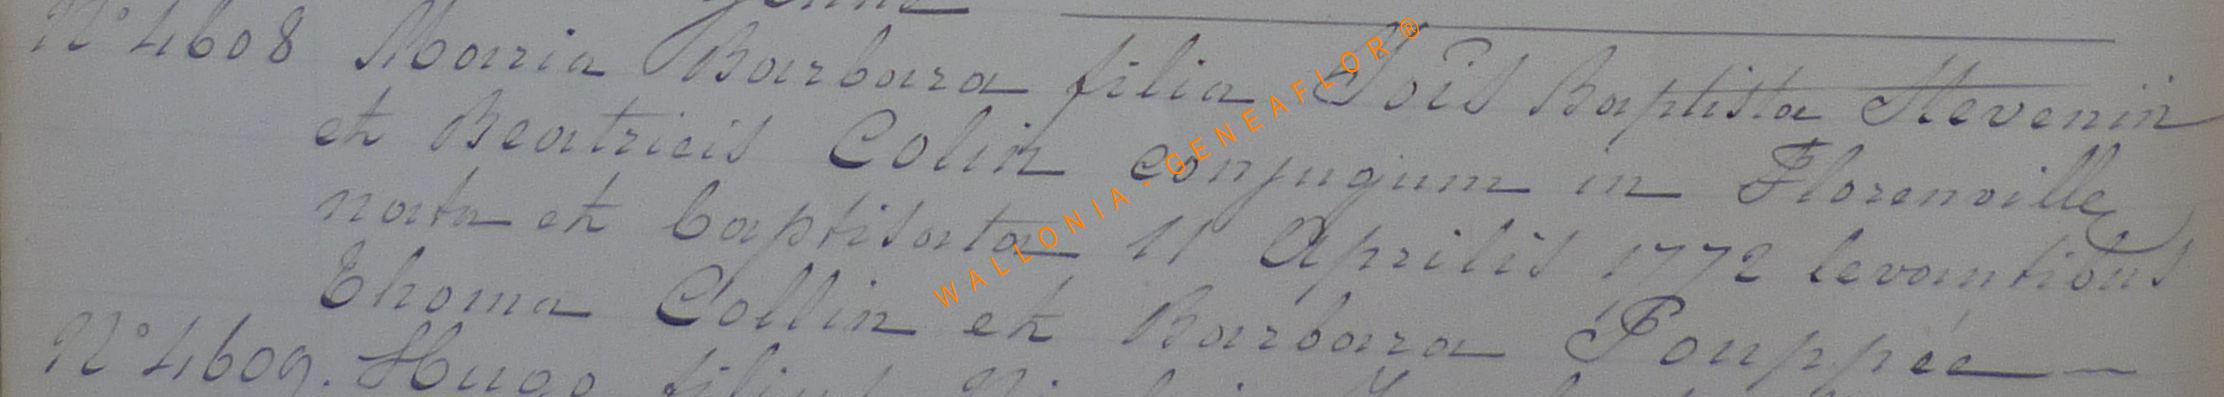 N° 4608 Maria Barbara filia Jois Baptista Stevenin
et Beatricis Colin conjugum in Florenville
nata et baptisata 11 Aprilis 1772 levantibus
Thoma Collin et Barbara Pouppée —
N° 4609. Hugo filius
WALLONIA - GENEAFLOR ®